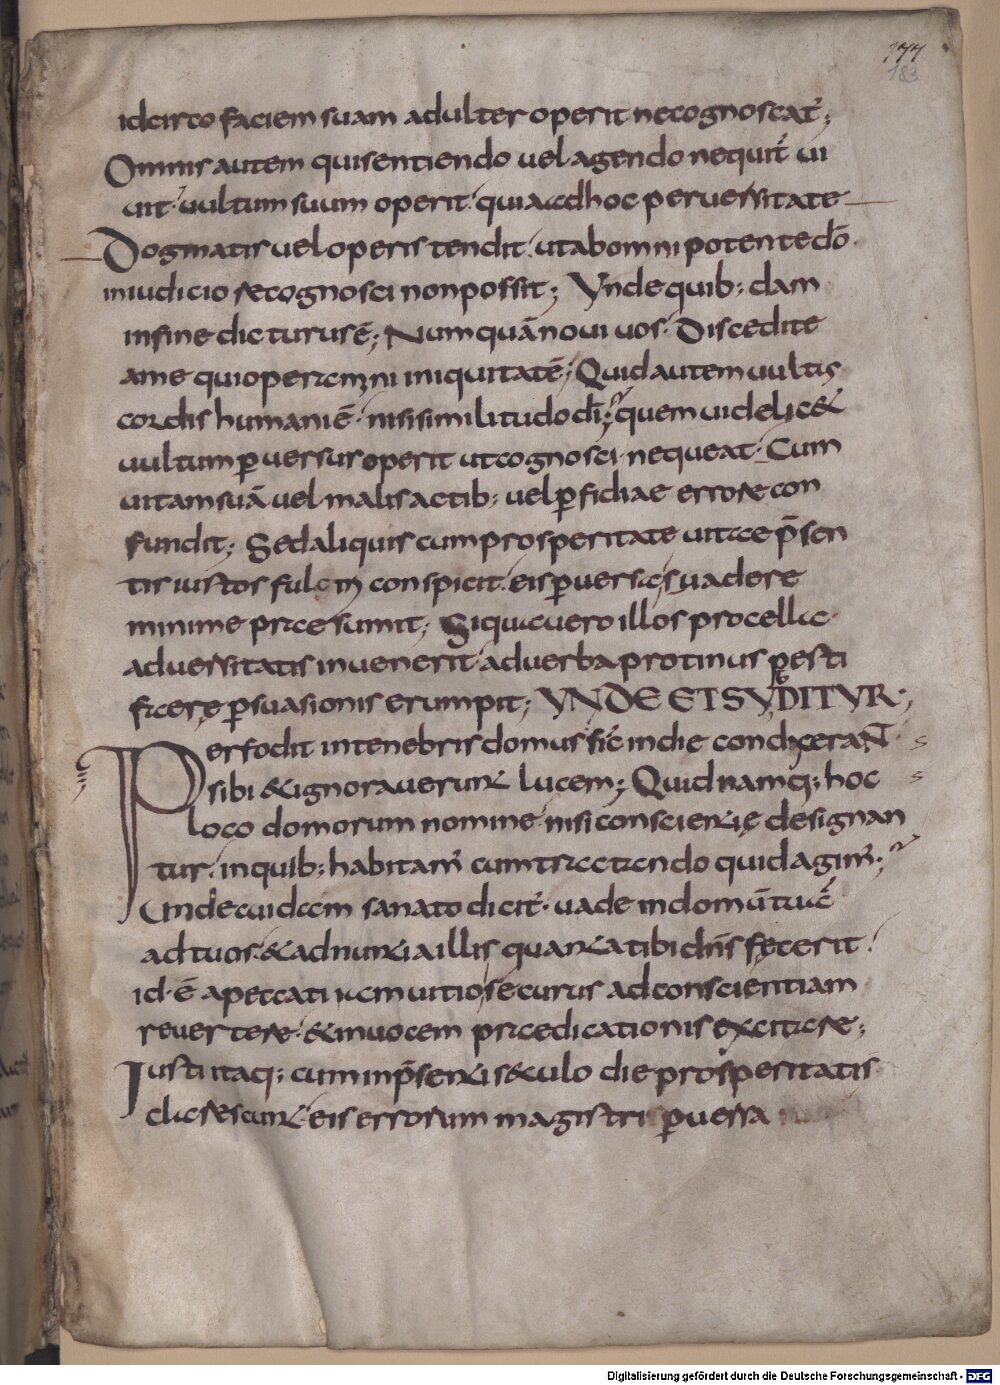 177
183
idcirco faciem suam adulter operit ne cognoscat᷑;
Omnis autem qui sentiendo vel agendo nequit᷑ vi
vit· vultum suum operit· quia ad hoc perversitate
Dogmatis vel operis tendit· ut ab omnipotente dō·
in iudicio recognosci non possit; Unde quib; dam
in fine dicturus ē; Numquā novi vos· Discedite
a me qui operamini iniquitatē; Quid autem vultus
cordis humani ē· nisi similitudo dī; quem videlic&
vultum ꝑversus operit ut cognosci nequeat· Cum
vitam suā vel malis actib; vel ꝑfidiae errore con
fundit; Sed aliquis cum prosperitate vitae p̄sen
tis iustos fulciri conspicit· eis ꝑversa suadere
minime praesumit; Si qua vero illos procella
adversitatis invenerit· ad verba protinus pesti
ferę ꝑsuasionis erumpit; UNDE ET SUBDITUR;
Perfodit in tenebris domus sic̄ in die condixerant
sibi & ignoraverunt lucem; Quid namq; hoc
loco domorum nomine nisi conscientię designan
tur· in quib; habitam᷑ cum tractando quid agim᷑;
Unde cuidam sanato dicit᷑· vade in domū tuā
ad tuos· & adnuntia illis quanta tibi dn̄s fecerit·
id· ē a peccati iam vitio securus ad conscientiam
revertere· & in vocem praedicationis excitare;
Iusti itaq; cum in p̄sentis sęculo die prosperitatis
claresc&#117;nt eis errorum magistri ꝑversa
Digitalisierung gefördert durch die Deutsche Forschungsgemeinschaft - DFG